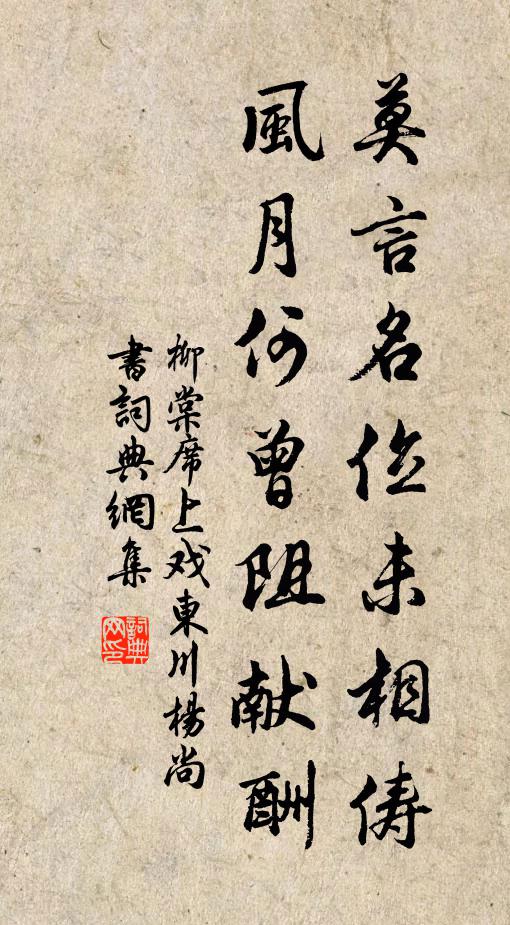 莫言名位未相俦
風月何曾阻献酬
柳棠席上戏東川楊尚
書詞典網集
詞典
网印